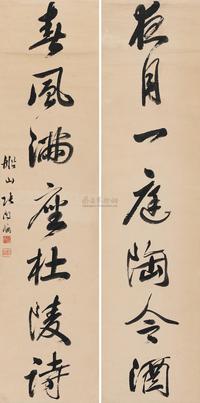 夜月一庭陶令酒
春風滿座杜陵詩
船山張問陶